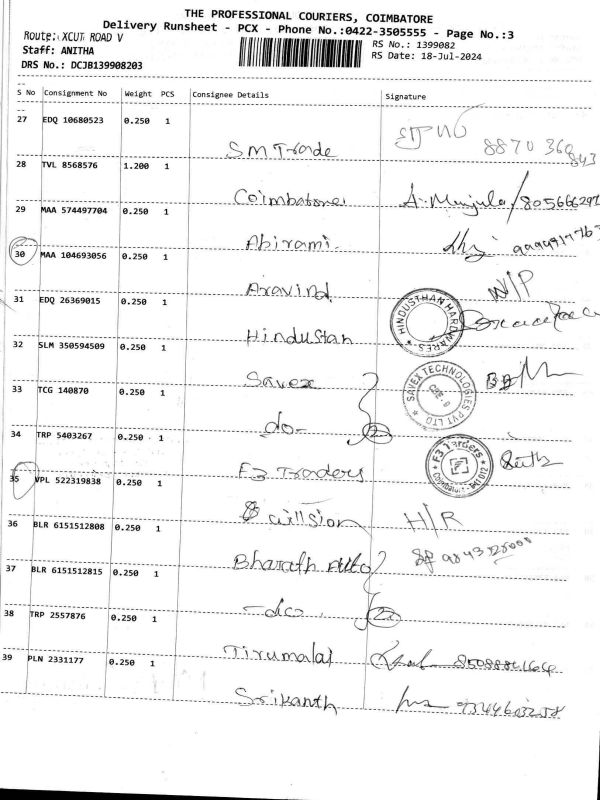 THE PROFESSIONAL COURIERS, COIMBATORE
Delivery Runsheet - PCX - Phone No.:0422-3505555 - Page No.:3
Route: XCUT ROAD V
Staff: ANITHA
DRS No.: DCJB139908203
RS No.: 1399082
RS Date: 18-Jul-2024
S No Consignment No Weight PCS Consignee Details Signature
27 EDQ 10680523 0.250 1
SM Trade 8870 360 843
28 TVL 8568576 1.200 1
Coimbatore A. Manjula / 805666297
29 MAA 574497704 0.250 1
Abirami
30 MAA 104693056 0.250 1
Aravind N/P
31 EDQ 26369015 0.250 1
Hindustan HINDUSTHAN HARDWARES
32 SLM 350594509 0.250 1
Savex SAVEX TECHNOLOGIES PVT LTD
33 TCG 140870 0.250 1
do- 2
34 TRP 5403267 0.250 1
F3 Traders F3 Traders Coimbatore - 641 012
35 VPL 522319838 0.250 1
H/R
36 BLR 6151512808 0.250 1
Bharath Auto
37 BLR 6151512815 0.250 1
-do. 2
38 TRP 2557876 0.250 1
Tirumalai
39 PLN 2331177 0.250 1
Srikanth